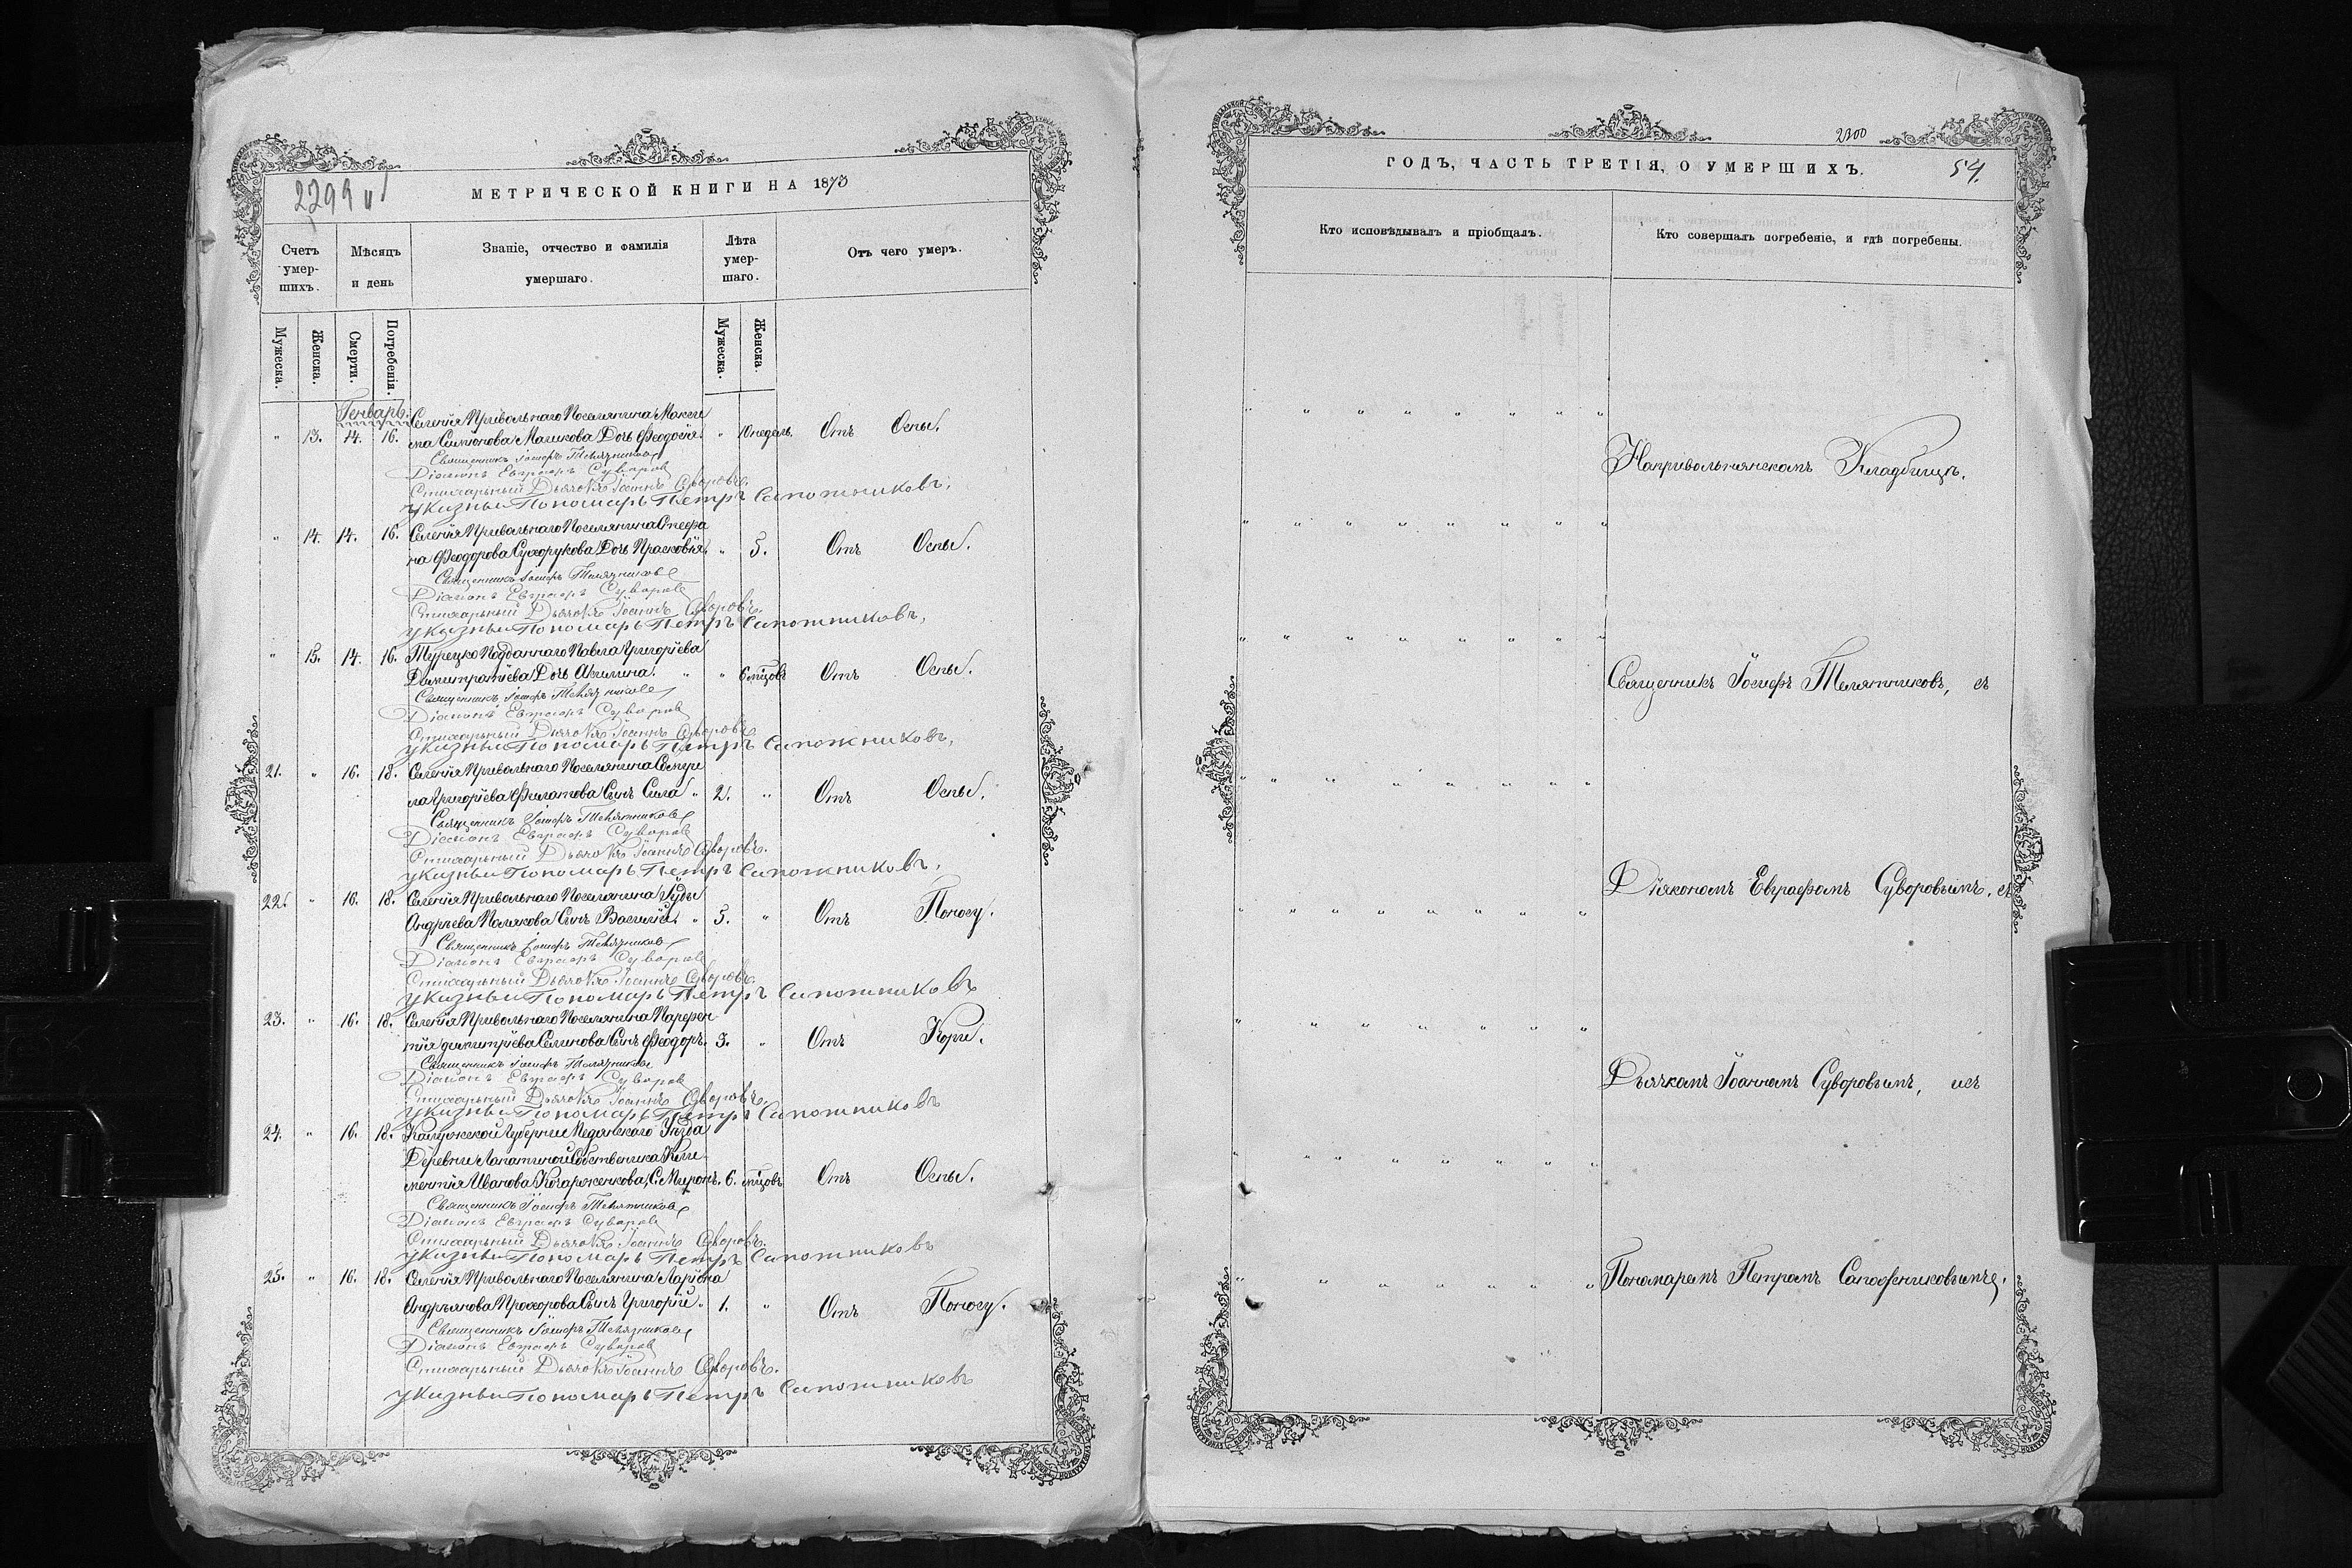 2299 и
МЕТРИЧЕСКОЙ КНИГИ НА 1873
Счетъ умер-шихъ.
Мѣсяцъ и день
Званіе, отчество и фамилія умершаго.
Лѣта умер-шаго.
Отъ чего умеръ.
Мужеска.
Женска.
Смерти.
Погребенія.
Мужеска.
Женска.
Генварь.
Селенія Привольнаго Поселянина Макси
" 13. 14. 16. ма Симіонова Маликова Дочь Феодосія. " 10 недѣль. Отъ Оспы.
Священникъ Іосифъ Телятниковъ
Діаконъ Евграфъ Суворовъ
Стихарный Дьячокъ Іоаннъ Суворовъ.
указный Пономарь Петръ Сапожниковъ.
" 14. 14. 16. Селенія Привольнаго Поселянина Стефа
на Феодорова Сухорукова Дочь Прасковія. " 5. Отъ Оспы.
Священникъ Іосифъ Телятниковъ
Діаконъ Евграфъ Суворовъ
Стихарный Дьячокъ Іоаннъ Суворовъ.
указный Пономарь Петръ Сапожниковъ.
" 15. 14. 16. Турецко Подданнаго Павла Григоріева
Димитратіева Дочь Акилина. " " 6 мцовъ Отъ Оспы.
Священникъ Іосифъ Телятниковъ
Діаконъ Евграфъ Суворовъ
Стихарный Дьячокъ Іоаннъ Суворовъ
указный Пономарь Петръ Сапожниковъ.
21. " 16. 18. Селенія Привольнаго Поселянина Самуи
ла Григоріева Филатова Сынъ Сила " 2. " Отъ Оспы.
Священникъ Іосифъ Телятниковъ
Діаконъ Евграфъ Суворовъ
Стихарный Дьячокъ Іоаннъ Суворовъ.
указный Пономарь Петръ Сапожниковъ.
22. " 16. 18. Селенія Привольнаго Поселянина Іуды
Андрѣева Полякова Сынъ Василій. " 5. " Отъ Поносу.
Священникъ Іосифъ Телятниковъ
Діаконъ Евграфъ Суворовъ
Стихарный Дьячокъ Іоаннъ Суворовъ.
указный Пономарь Петръ Сапожниковъ
23. " 16. 18. Селенія Привольнаго Поселянина Парфен
тія димитріева Селинова Сынъ Феодоръ. 3. " Отъ Кори.
Священникъ Іосифъ Телятниковъ
Діаконъ Евграфъ Суворовъ
Стихарный Дьячокъ Іоаннъ Суворовъ.
указный Пономарь Петръ Сапожниковъ
24. " 16. 18. Калужской Губерніи Медынскаго Уѣзда
Деревни Лапатиной Собственника Кли
ментія Иванова С. Миронъ. 6. мцовъ Отъ Оспы.
Священникъ Іосифъ Телятниковъ
Діаконъ Евграфъ Суворовъ
Стихарный Дьячокъ Іоаннъ Суворовъ.
указный Пономарь Петръ Сапожниковъ
25. " 16. 18. Селенія Привольнаго Поселянина Ларіона
Андріанова Прохорова Сынъ Григорій. " 1. " Отъ Поносу.
Священникъ Іосифъ Телятниковъ
Діаконъ Евграфъ Суворовъ
Стихарный Дьячокъ Іоаннъ Суворовъ.
указный Пономарь Петръ Сапожниковъ
2300
ГОДЪ, ЧАСТЬ ТРЕТІЯ, О УМЕРШИХЪ.
54.
Кто исповѣдывалъ и пріобщалъ.
Кто совершалъ погребеніе, и гдѣ погребены.
На привольнянскомъ Кладбищѣ.
Священникъ Іосифъ Телятниковъ, съ
Діякономъ Евграфомъ Суворовымъ, съ
Дьячкомъ Іоанномъ Суворовымъ, исъ
Пономаремъ Петромъ Сапожниковымъ.